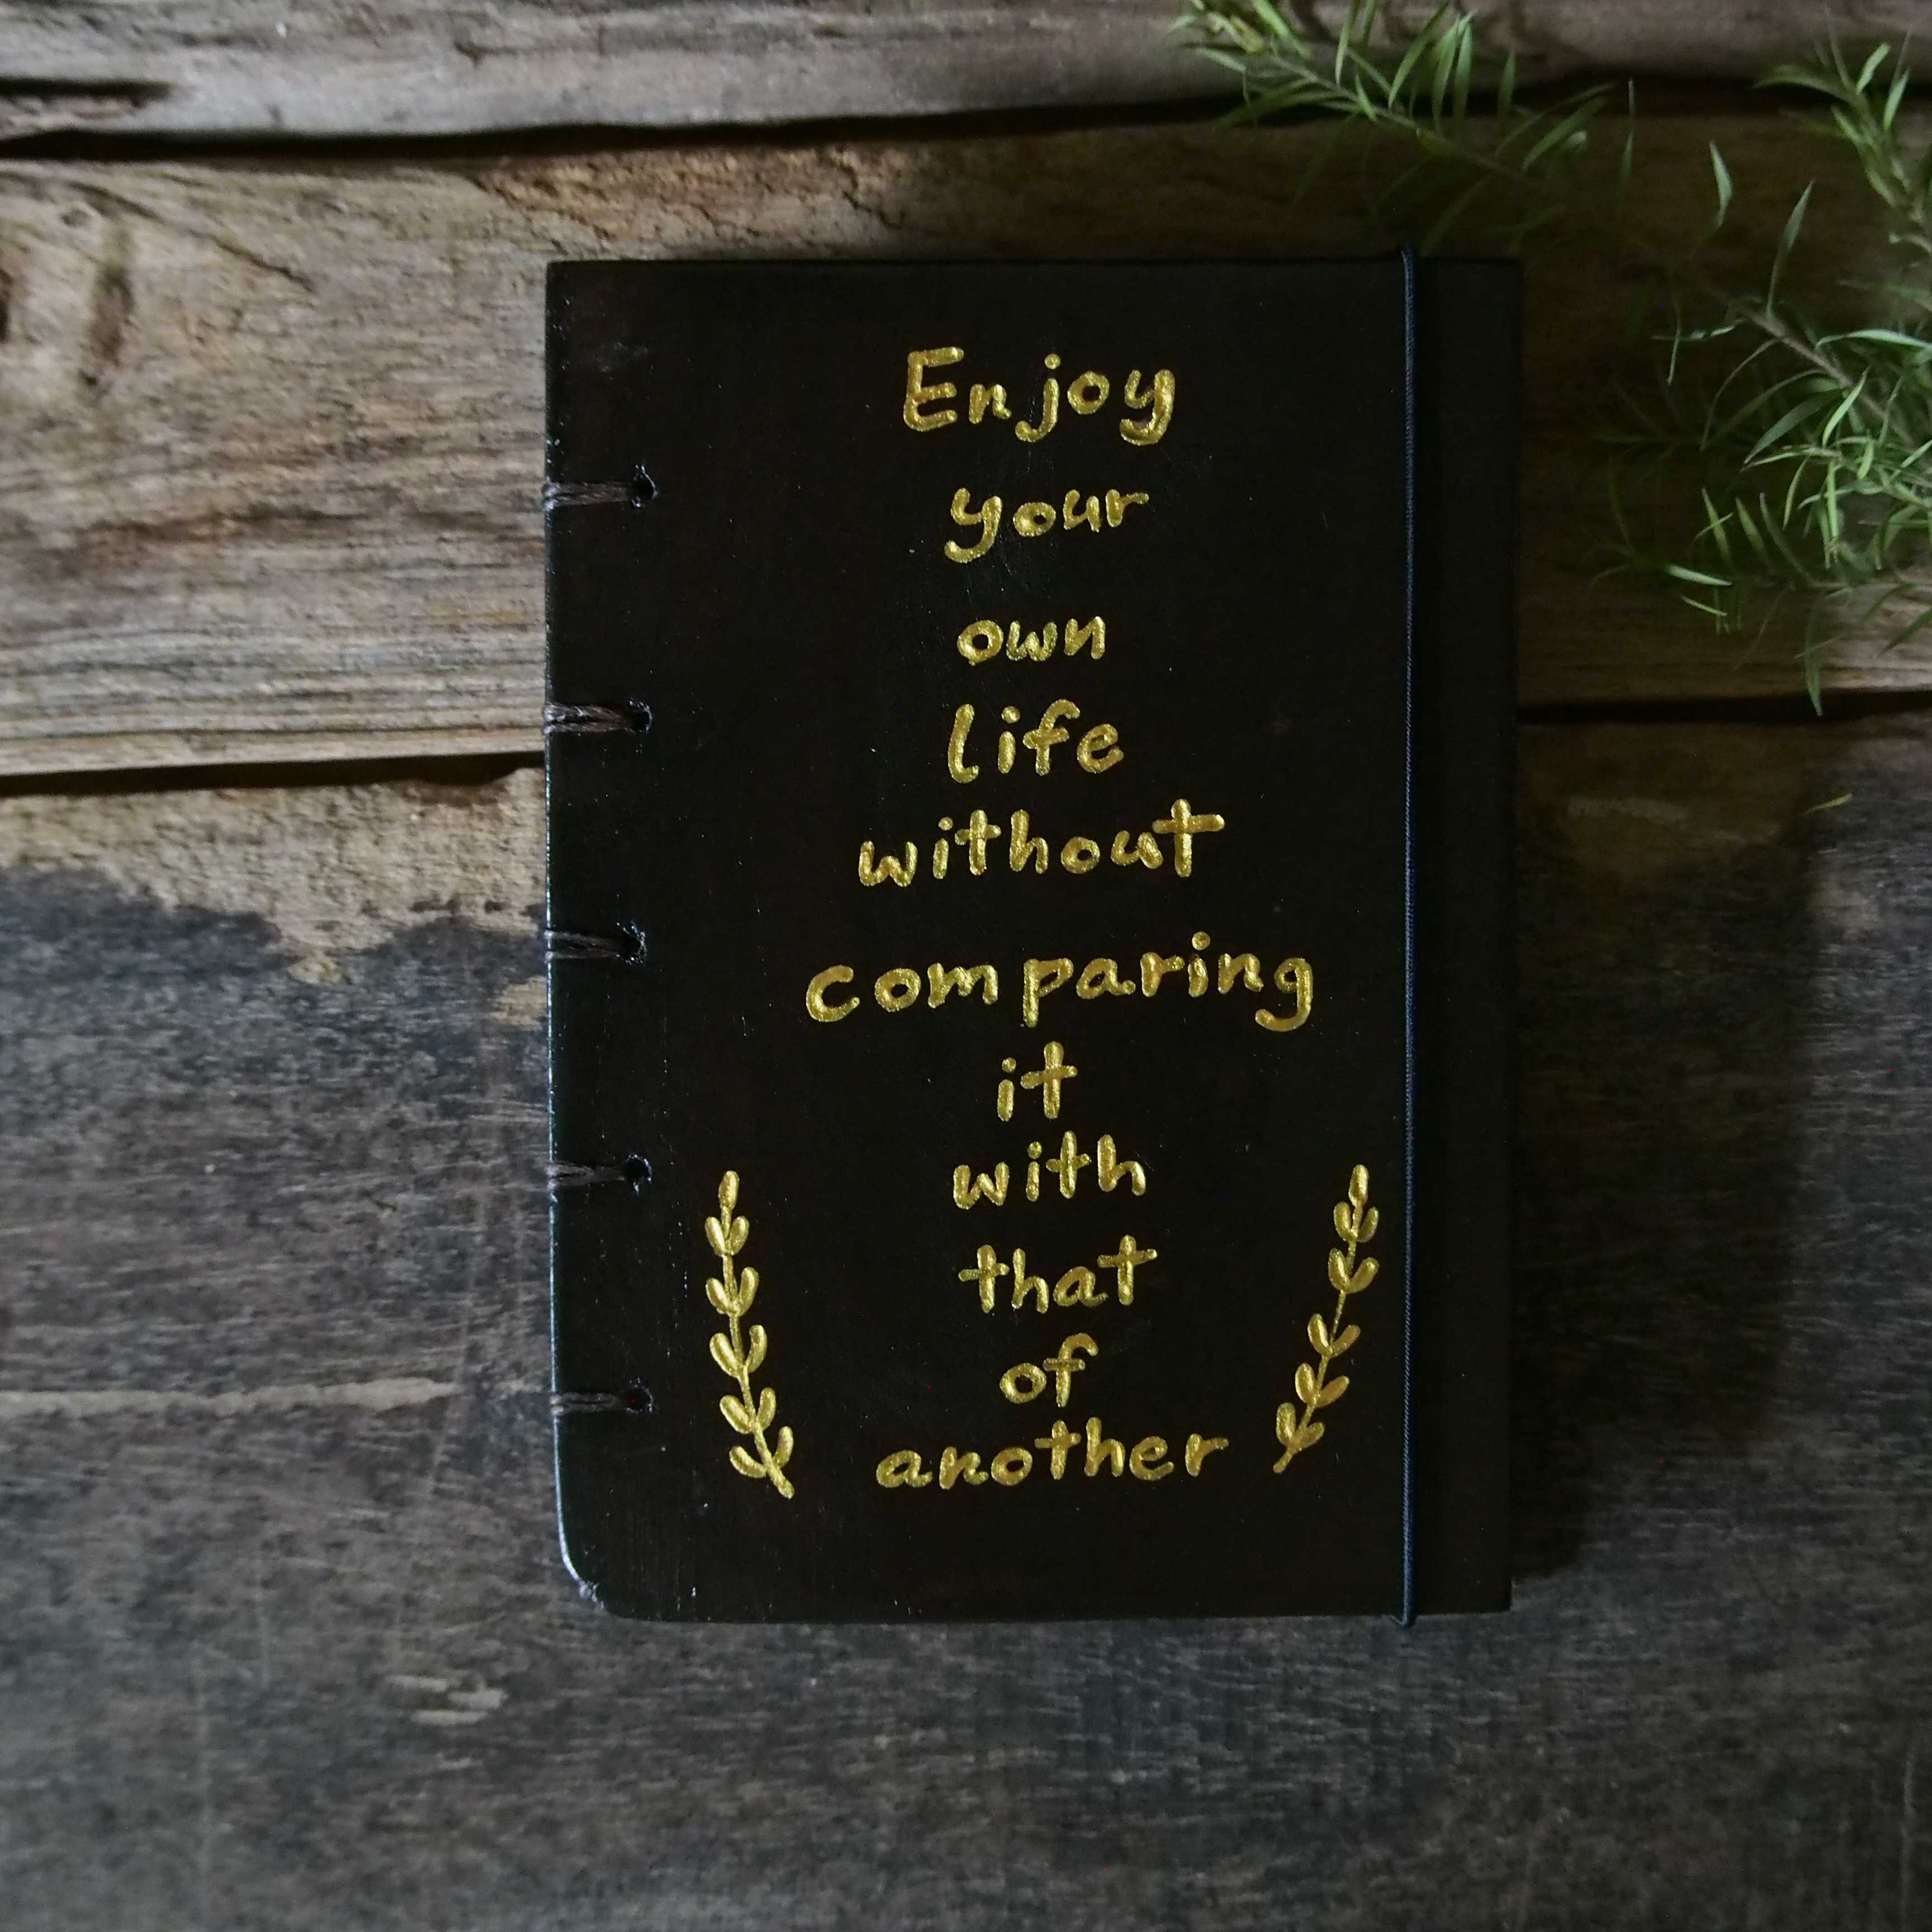 Enjoy
your
own
life
without
comparing
it
with
that
of
another